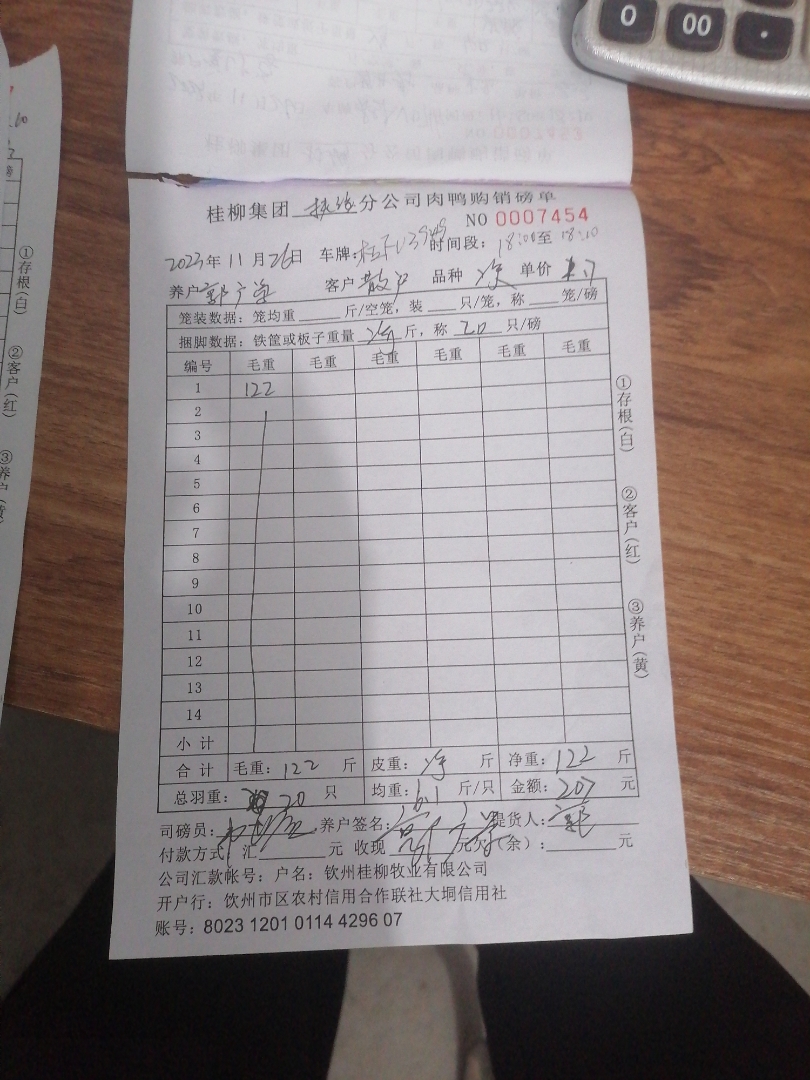 0 00 .
桂柳集团 分公司肉鸭购销磅单
NO 0007454
2023年11月26日 车牌: 时间段: 18:00至18:10
养户 客户 散户 品种 次 单价 1.7
笼装数据: 笼均重 斤/空笼, 装 只/笼, 称 笼/磅
捆脚数据: 铁筐或板子重量 净 斤, 称 20 只/磅
编号 毛重 毛重 毛重 毛重 毛重 毛重
1 122
2
3
4
5
6
7
8
9
10
11
12
13
14
小计
合计 毛重: 122 斤 皮重: 净 斤 净重: 122 斤
总羽重: 20 只 均重: 6.1 斤/只 金额: 207 元
司磅员: 养户签名: 提货人:
付款方式: 汇 元 收现 元欠(余): 元
公司汇款帐号: 户名: 钦州桂柳牧业有限公司
开户行: 饮州市区农村信用合作联社大垌信用社
账号: 8023 1201 0114 4296 07
①存根(白)
②客户(红)
③养户(黄)
①存根(白)
②客户(红)
③养户(黄)